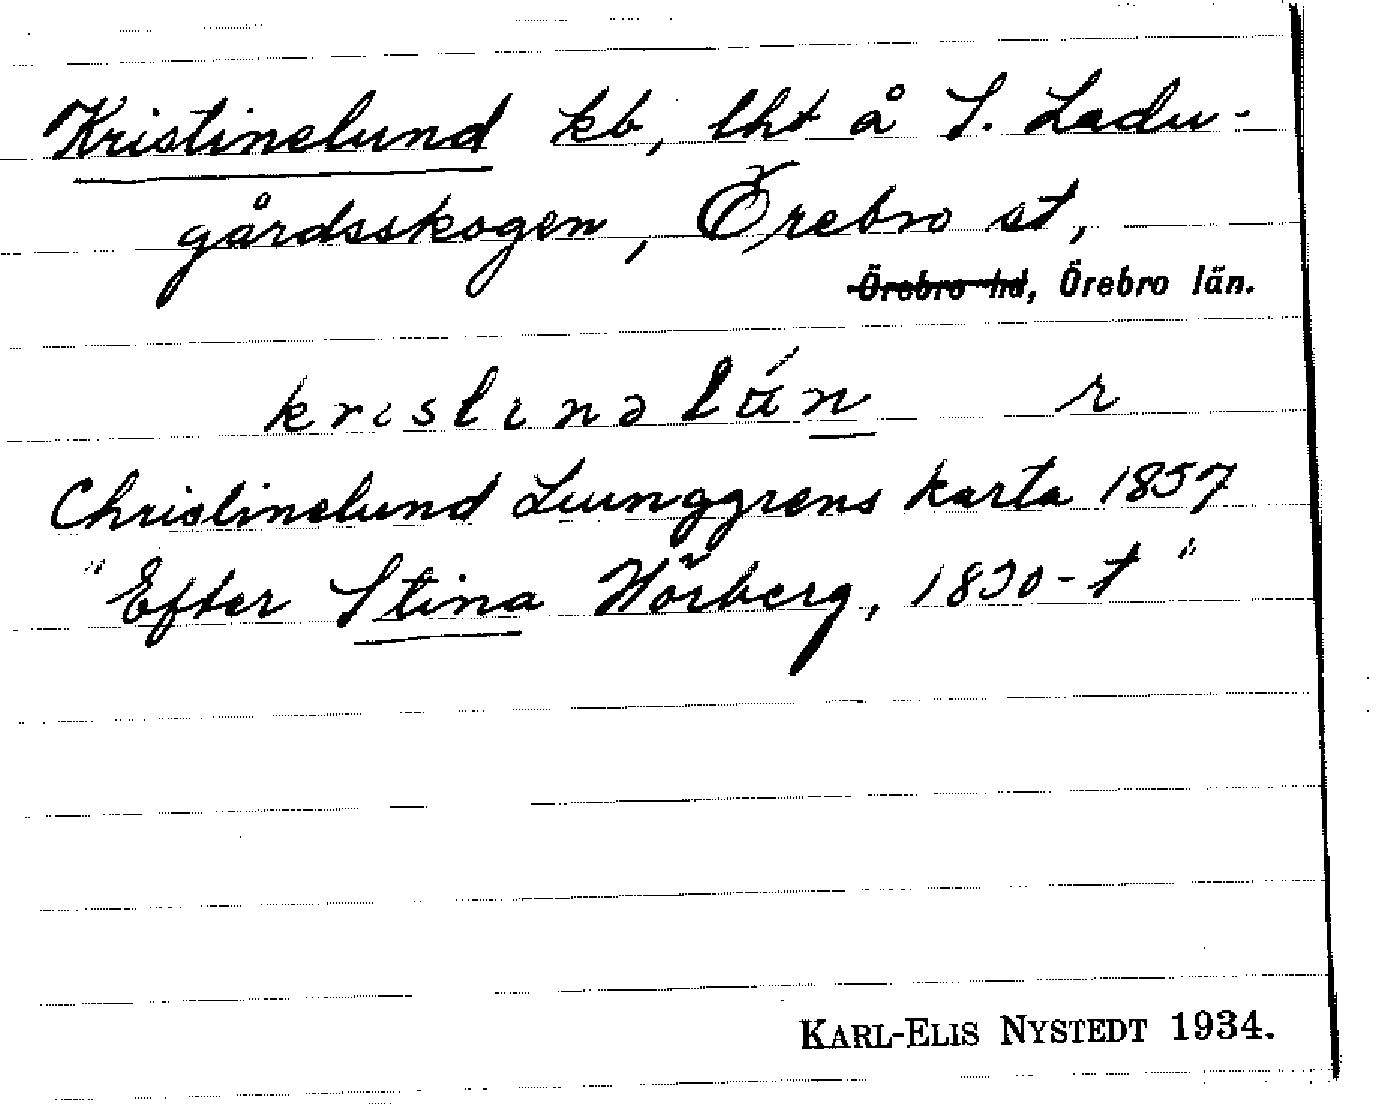 Kristinelund kb, lht å S. Ladu-
gårdsskogen, Örebro st,
Örebro hd, Örebro län.
kristinəlún r
Christinelund Ljunggrens karta 1857
"Efter Stina Hörberg, 1830-t"
KARL-ELIS NYSTEDT 1934.